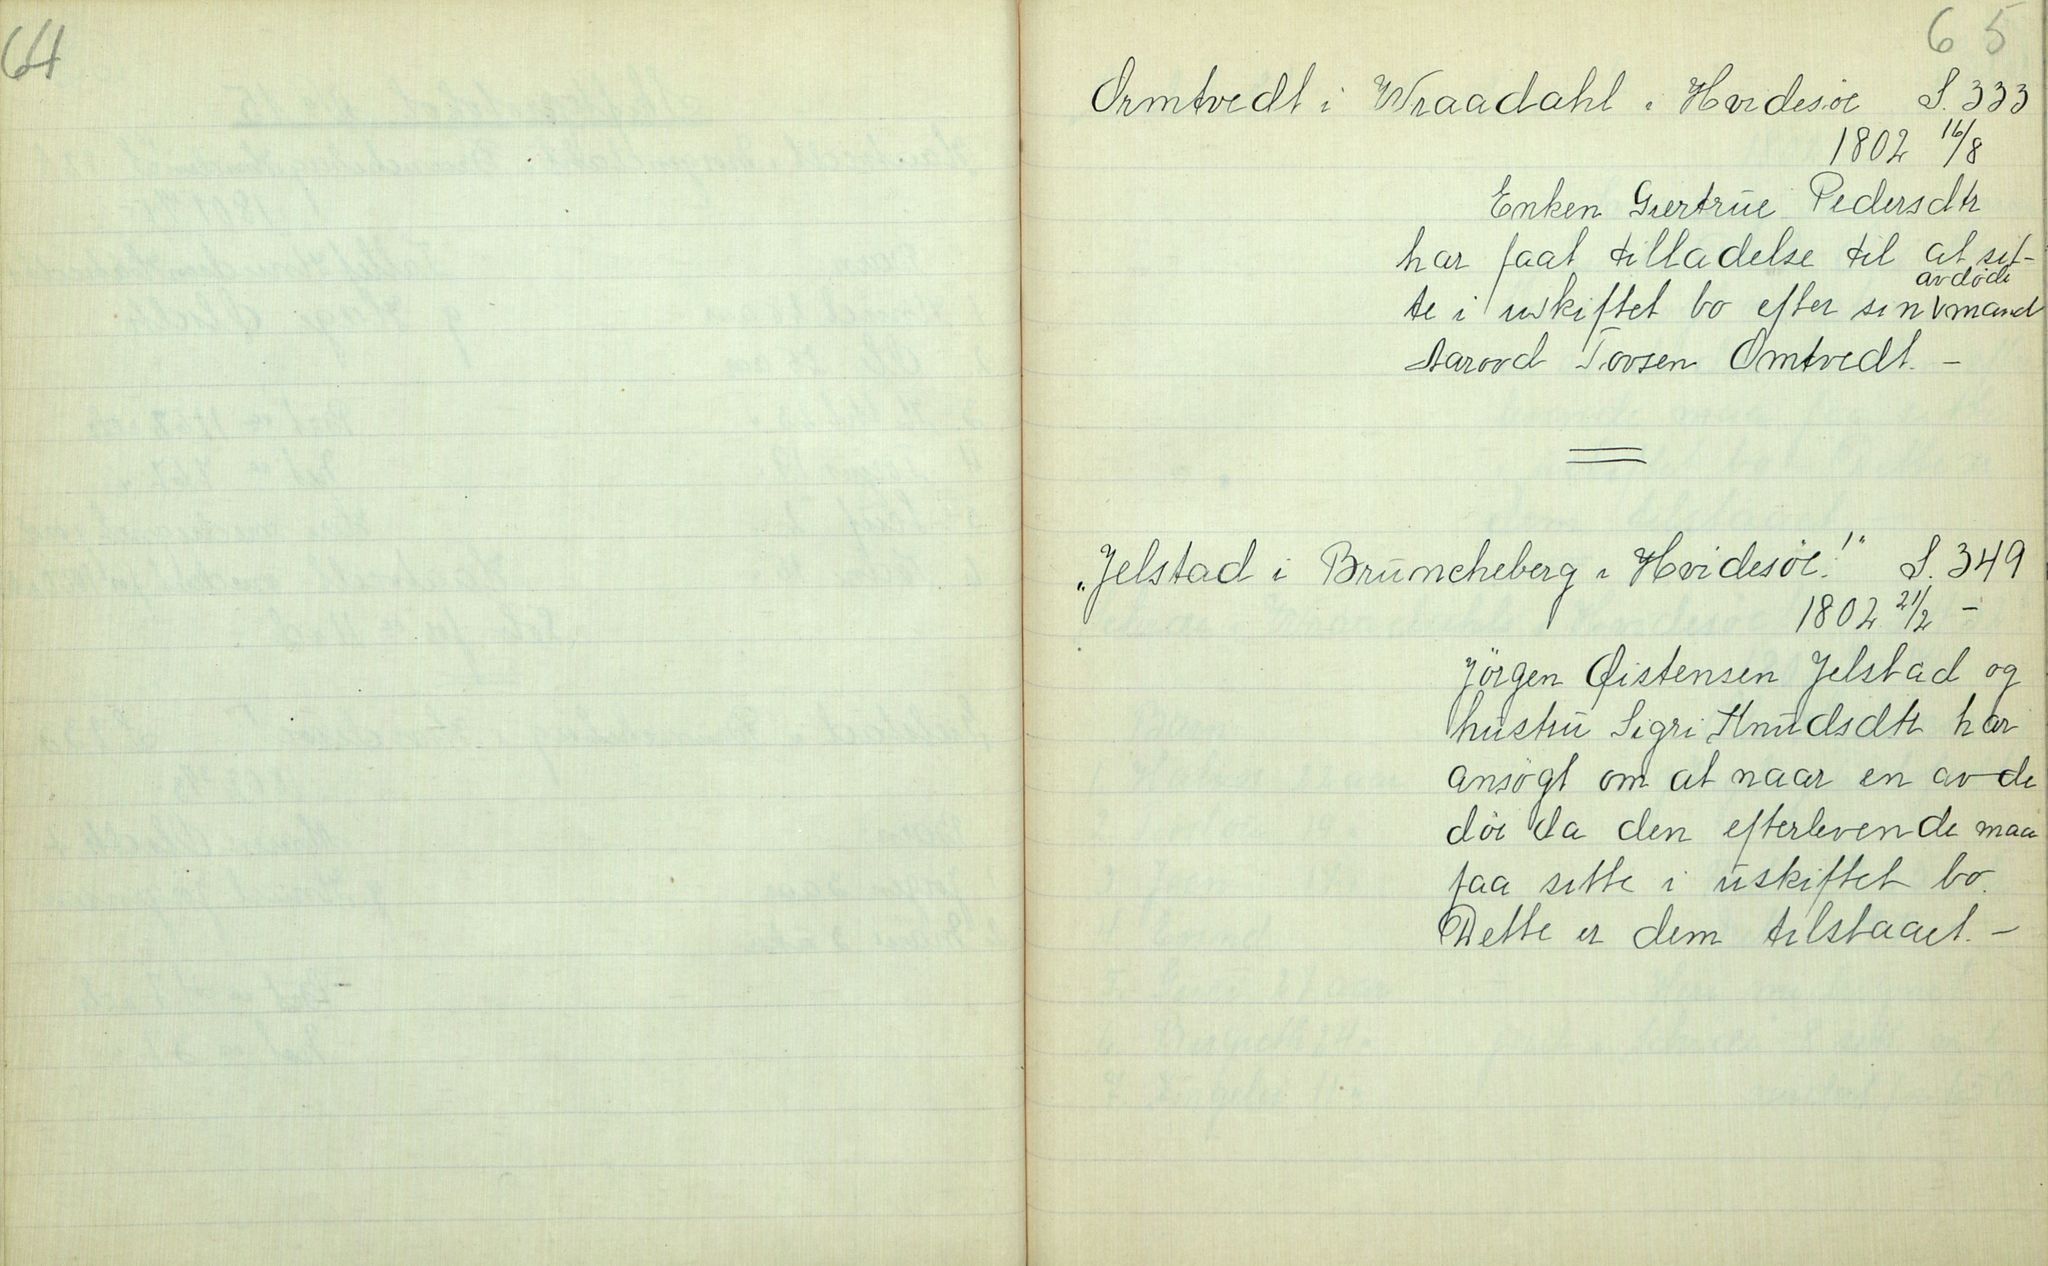 64
65
Ormtvedt i Wraadahl i Hvidesöe S. 333
1802 16/8
Enken Giertrue Pedersdtr
har faat tilladelse til at sit-
te i uskiftet bo efter sin avdöde mand
Aarovd Tovsen Omtvedt. –
"Jelstad i Bruncheberg i Hvidesöe!" S. 349
1802 21/2 –
Jörgen Øistensen Jelstad og
hustru Sigri Knudsdtr har
ansögt om at naar en av de
döe da den efterlevende maa
faa sitte i uskiftet bo.
Dette er dem tilstaaet. –